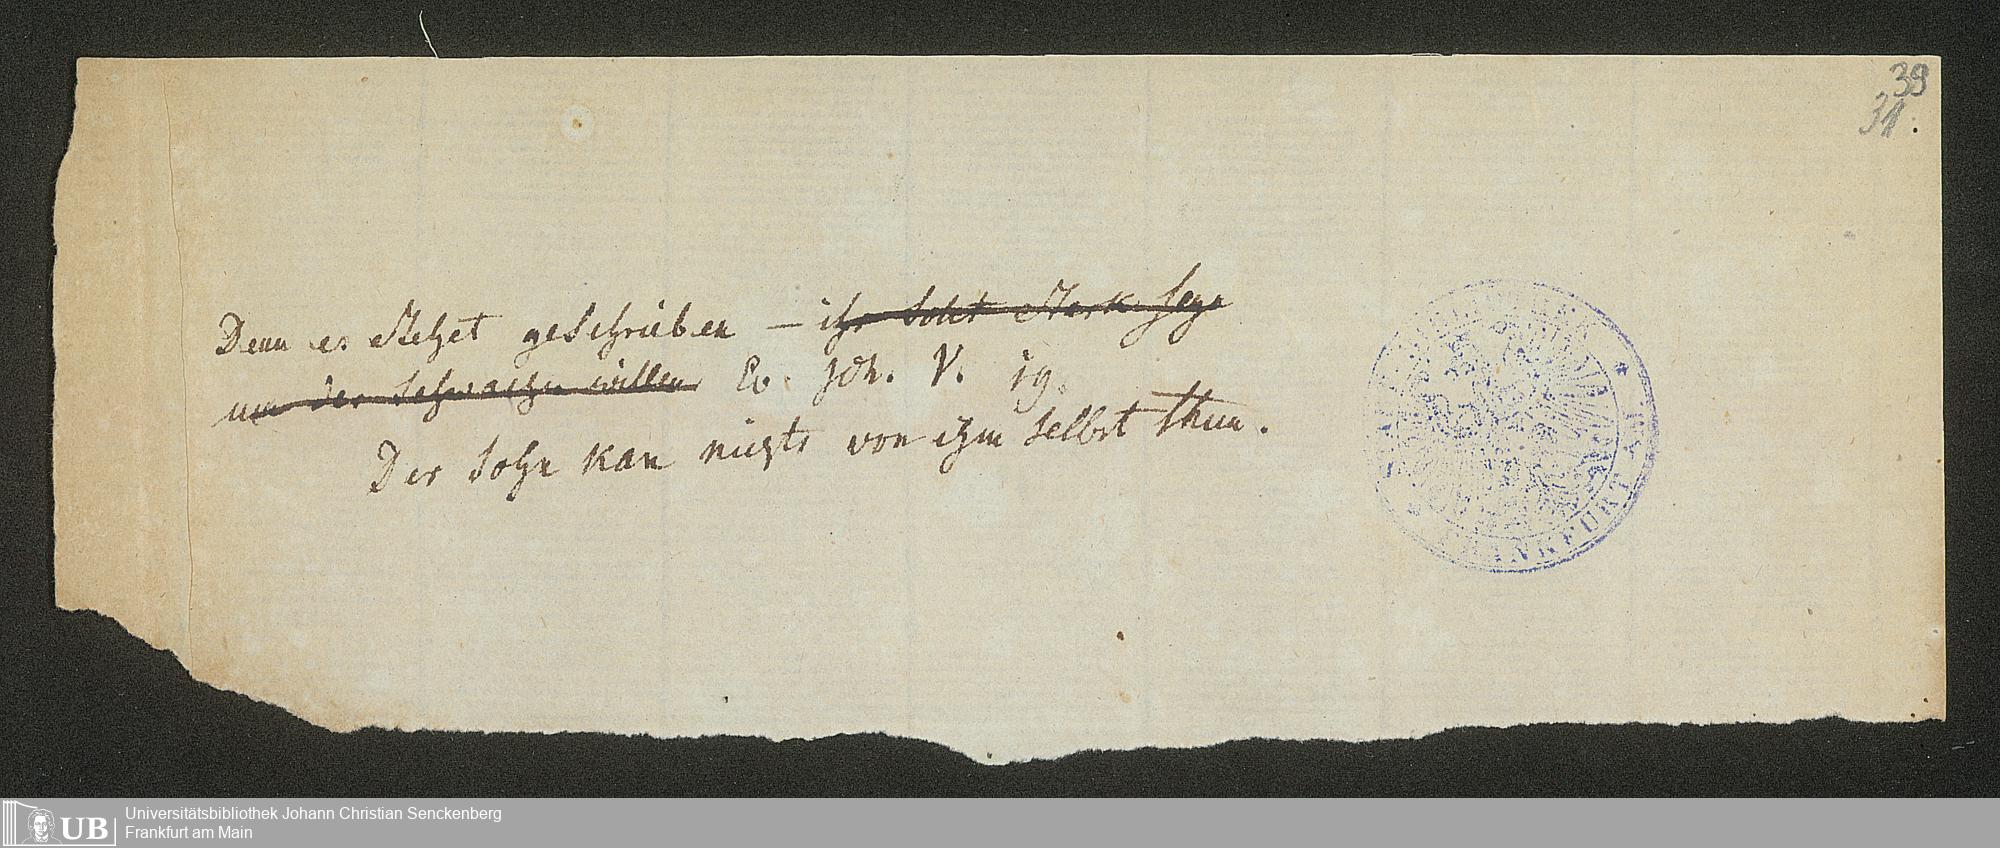 39
31.
Denn es stehet geschrieben – ihr solt stark seyn
um der schwachen willen Ev. Joh. V. 19.
Der Sohn kan nichts von ihm selbst thun.
FRANKFURT A. M.
UB
Universitätsbibliothek Johann Christian Senckenberg
Frankfurt am Main